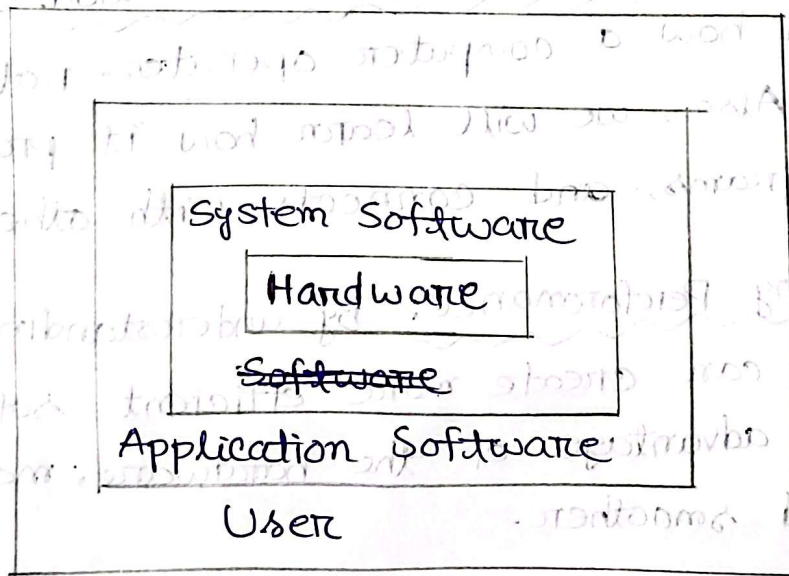 System Software
Hardware
Software
Application Software
User